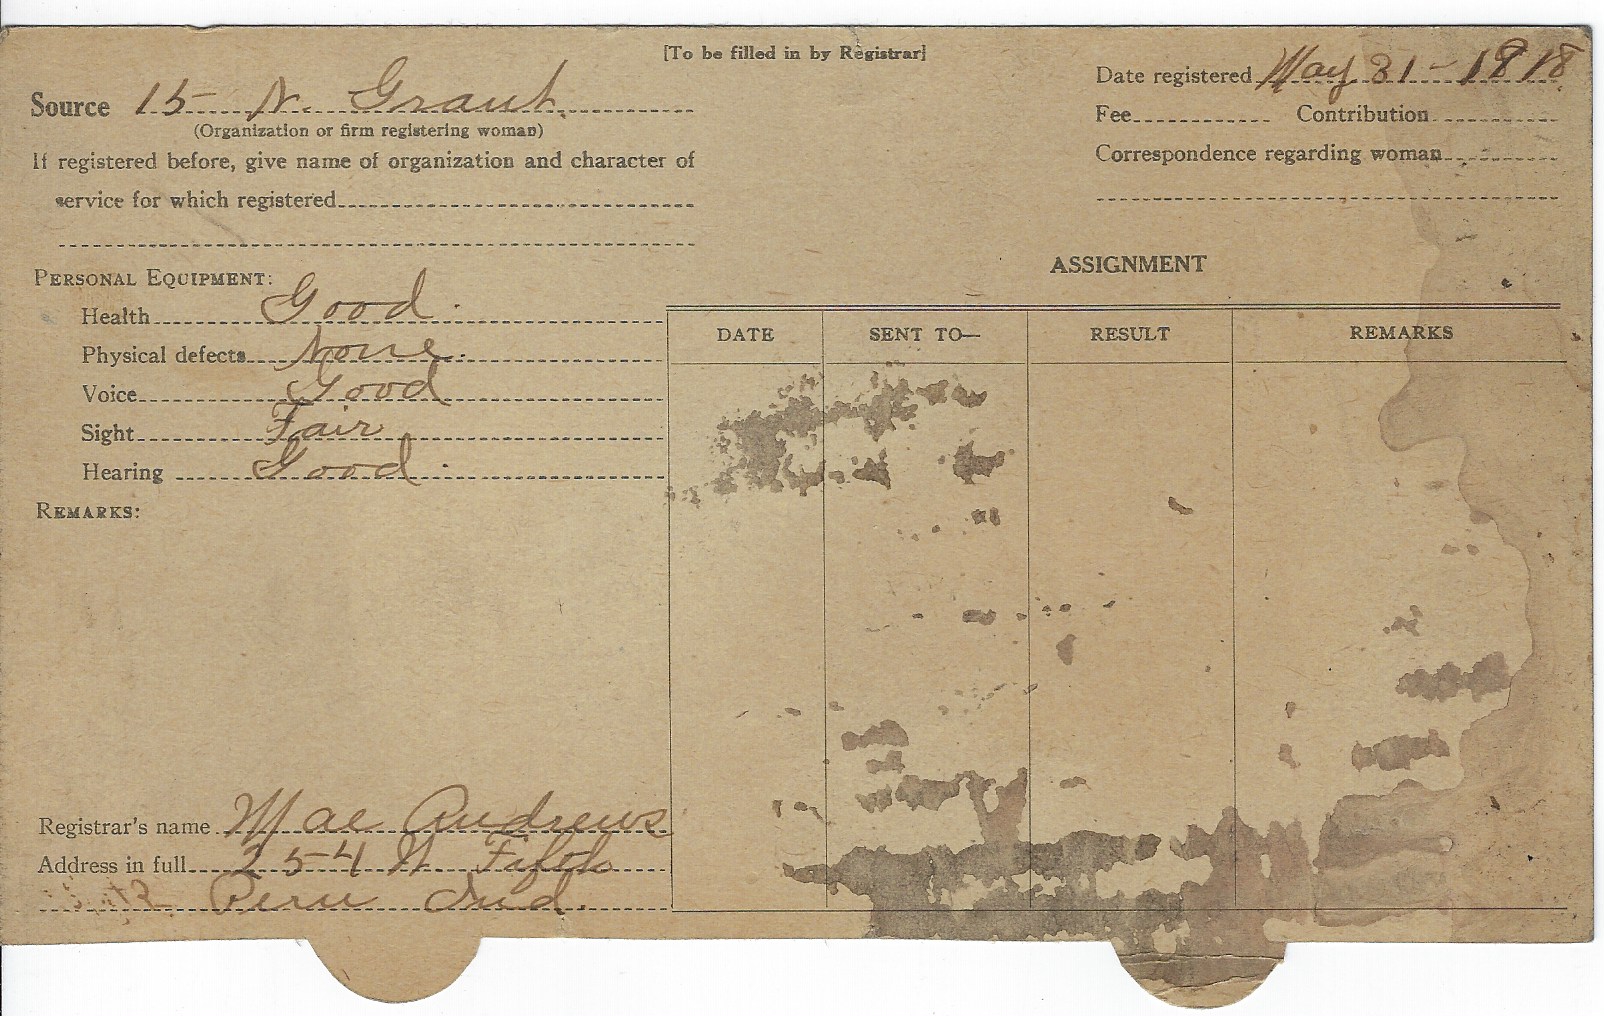 [To be filled in by Registrar]
Source 15 - N. Grant
(Organization or firm registering woman)
If registered before, give name of organization and character of
service for which registered
Date registered May 31 - 1918
Fee Contribution
Correspondence regarding woman
PERSONAL EQUIPMENT:
Health Good.
Physical defects None.
Voice Good
Sight Fair
Hearing Good.
REMARKS:
ASSIGNMENT
DATE SENT TO— RESULT REMARKS
Registrar's name Mae Andrews
Address in full 254 W. Fifth
Peru Ind.